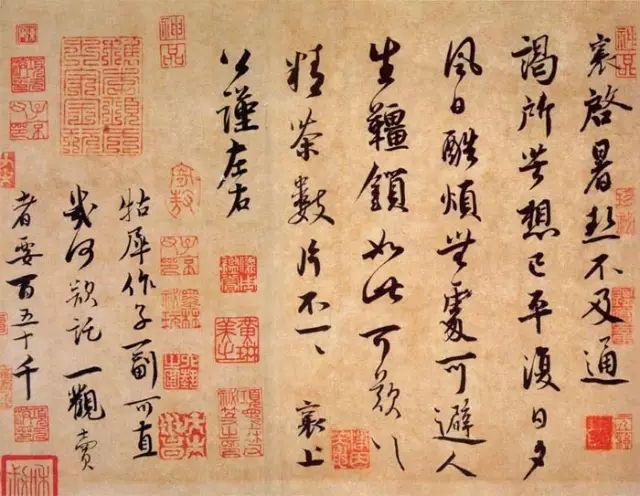 神品
襄啓暑熱不及通
謁所苦想已平復日夕
風日酷煩無處可避人
生韁鎖如此可歎〻
精茶數片不一〻 襄上
公謹左右
神品
牯犀作子一副可直
幾何欲託一觀賣
者要百五十千